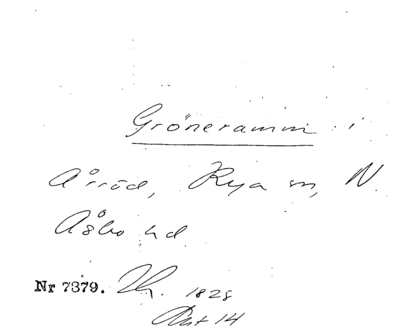 Gröneramm i
Åröd, Rya sn, N.
Åsbo hd
Nr 7379. 1828
Akt 14